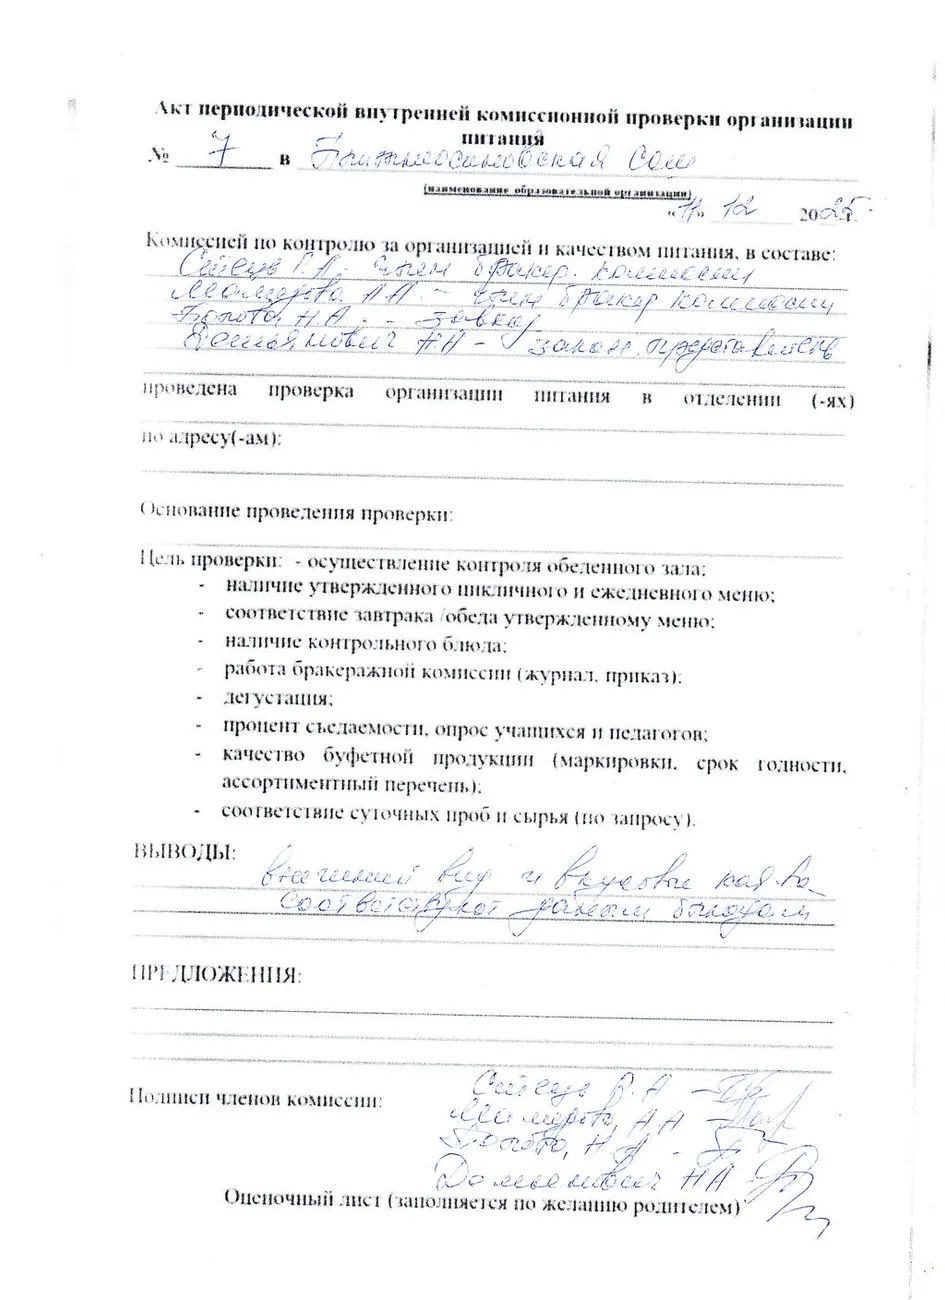 Акт периодической внутренней комиссионной проверки организации
питания
№ 7 в Нижнеосиновская сош
(наименование образовательной организации)
«11» 12 2025г.
Комиссией по контролю за организацией и качеством питания, в составе:
Р.А. - член бракер. комиссии
Мамедова А А - член бракер комиссии
Попова Н А. - завхоз
Демьянович Н А - закон. представитель
проведена проверка организации питания в отделении (-ях)
по адресу(-ам):
Основание проведения проверки:
Цель проверки: - осуществление контроля обеденного зала;
- наличие утвержденного цикличного и ежедневного меню;
- соответствие завтрака /обеда утвержденному меню;
- наличие контрольного блюда;
- работа бракеражной комиссии (журнал, приказ);
- дегустация;
- процент съедаемости, опрос учащихся и педагогов;
- качество буфетной продукции (маркировки, срок годности,
ассортиментный перечень);
- соответствие суточных проб и сырья (по запросу).
ВЫВОДЫ:
внешний вид и вкусовые кач-ва
соответствуют данным блюдам
ПРЕДЛОЖЕНИЯ:
Р.А -
Подписи членов комиссии:
Мамедова, А А -
Попова, Н А -
Демьянович Н А -
Оценочный лист (заполняется по желанию родителем)